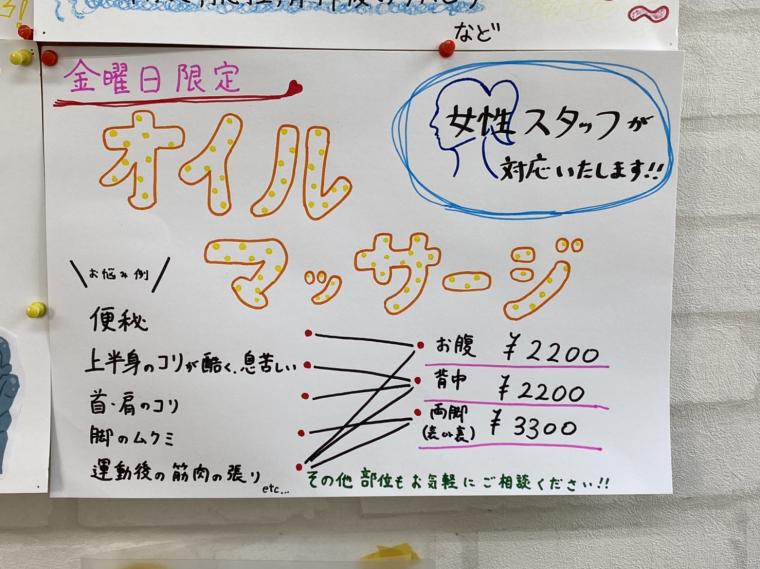 など
金曜日限定
女性スタッフが
対応いたします!!
オイル
マッサージ
お悩み例
便秘
上半身のコリが酷く、息苦しい
首・肩のコリ
脚のムクミ
運動後の筋肉の張り
etc...
お腹 ¥2200
背中 ¥2200
両脚 ¥3300
その他部位もお気軽にご相談ください!!